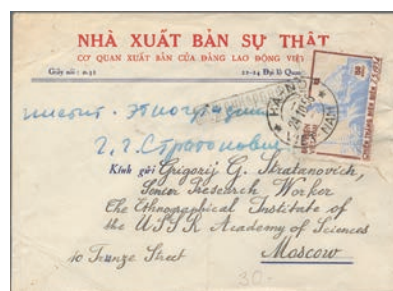 NHÀ XUẤT BẢN SỰ THẬT
CƠ QUAN XUẤT BẢN CỦA ĐẢNG LAO ĐỘNG VIỆT
Giây nói :
22-24 Đại lộ Quan
HA-NOI
NAM
Г. Г. Стратонович
Kính gửi Grigorij G. Stratanovich,
Senior Research Worker
The Ethnographical Institute of
the USSR Academy of Sciences
10 Frunze Street Moscow
30-